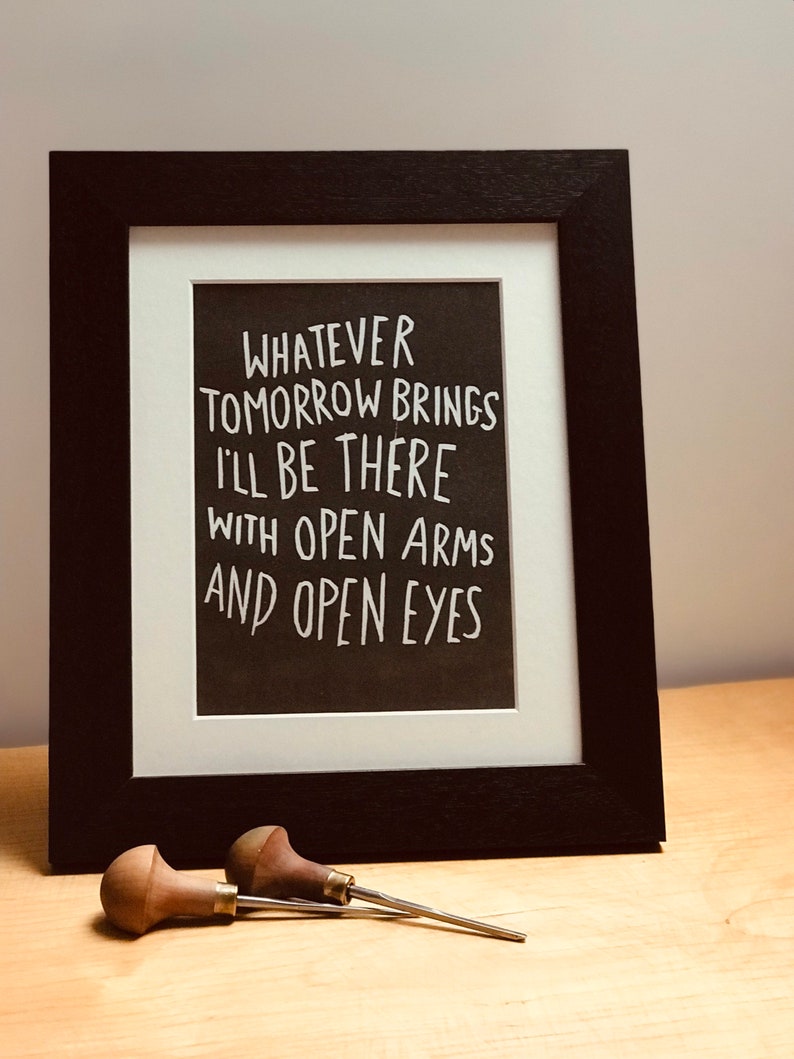 WHATEVER
TOMORROW BRINGS
I'LL BE THERE
WITH OPEN ARMS
AND OPEN EYES